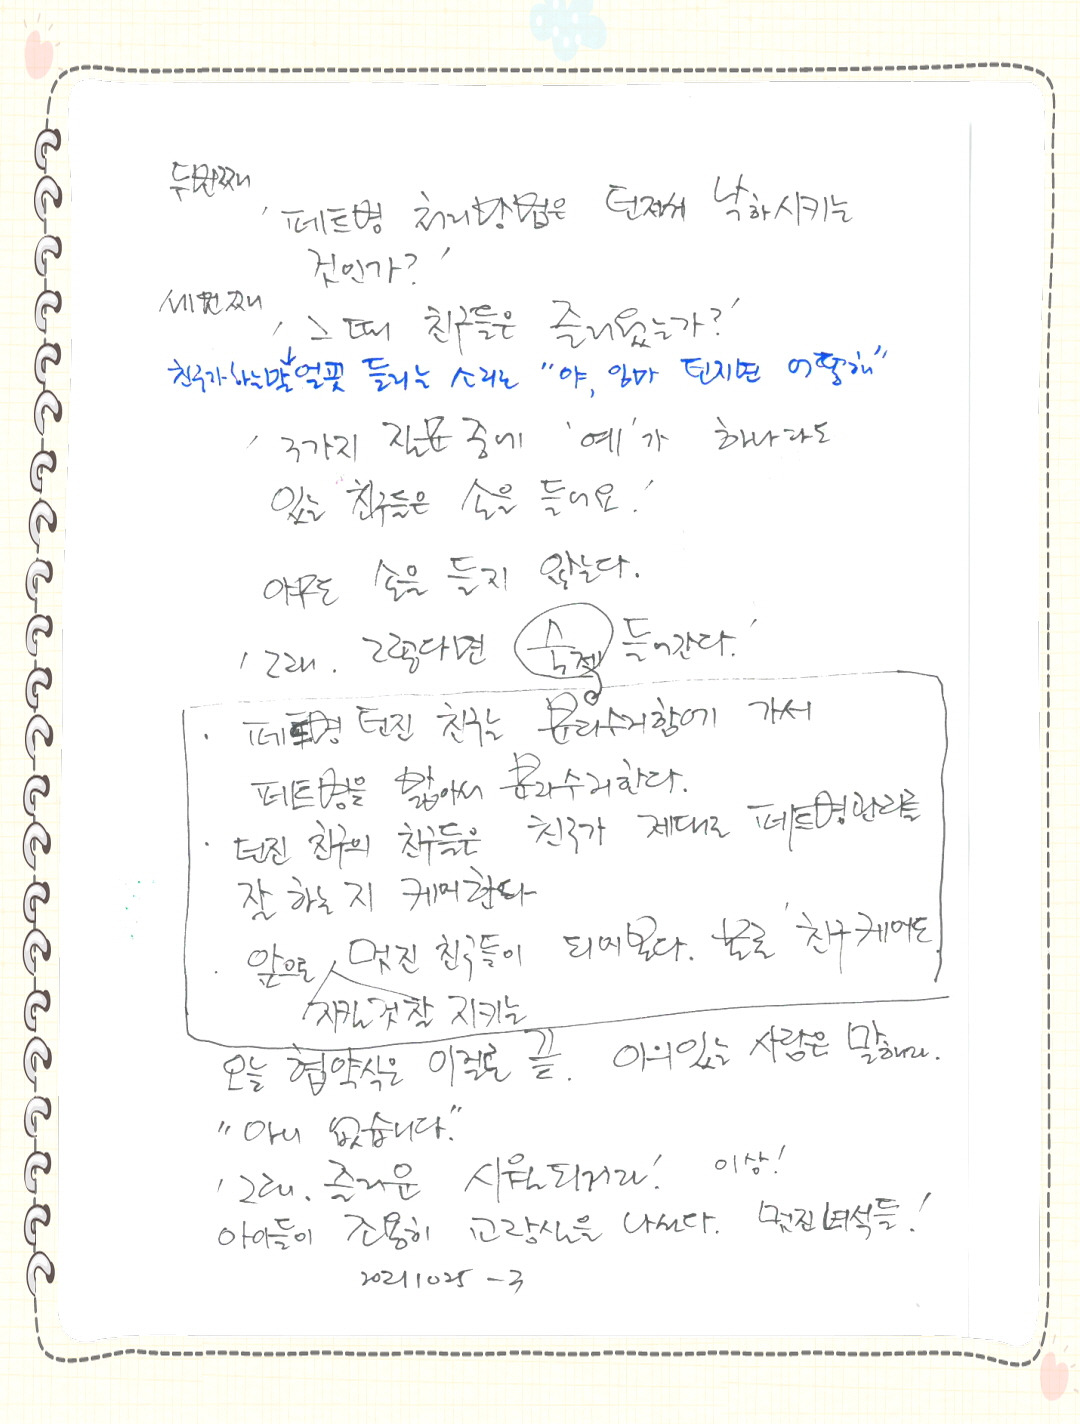 두번째
'페트병 처리방법은 던져서 낙하시키는
것인가?'
세번째
'그 때 친구들은 즐거웠는가?'
친구가 하는 말 얼핏 들리는 소리는 "야, 임마 던지면 어떻해"
'3가지 질문 중에 '예'가 하나라도
있는 친구들은 손을 들어요!'
아무도 손을 들지 않는다.
'그래. 그렇다면 숙제 들어간다.'
· 페트병 던진 친구는 분리수거함에 가서
페트병을 밟아서 분리수거한다.
· 던진 친구의 친구들은 친구가 제대로 페트병관리를
잘 하는지 케어한다
· 앞으로 멋진 친구들이 되어본다. 물론 '친구케어도
지킬것 잘 지키는
오늘 협약식은 이걸로 끝. 이의있는 사람은 말해라.
"아니 없습니다."
'그래. 즐거운 시월되거라! 이상!
아이들이 조용히 교장실을 나선다. 멋진녀석들!
20211025 - 3